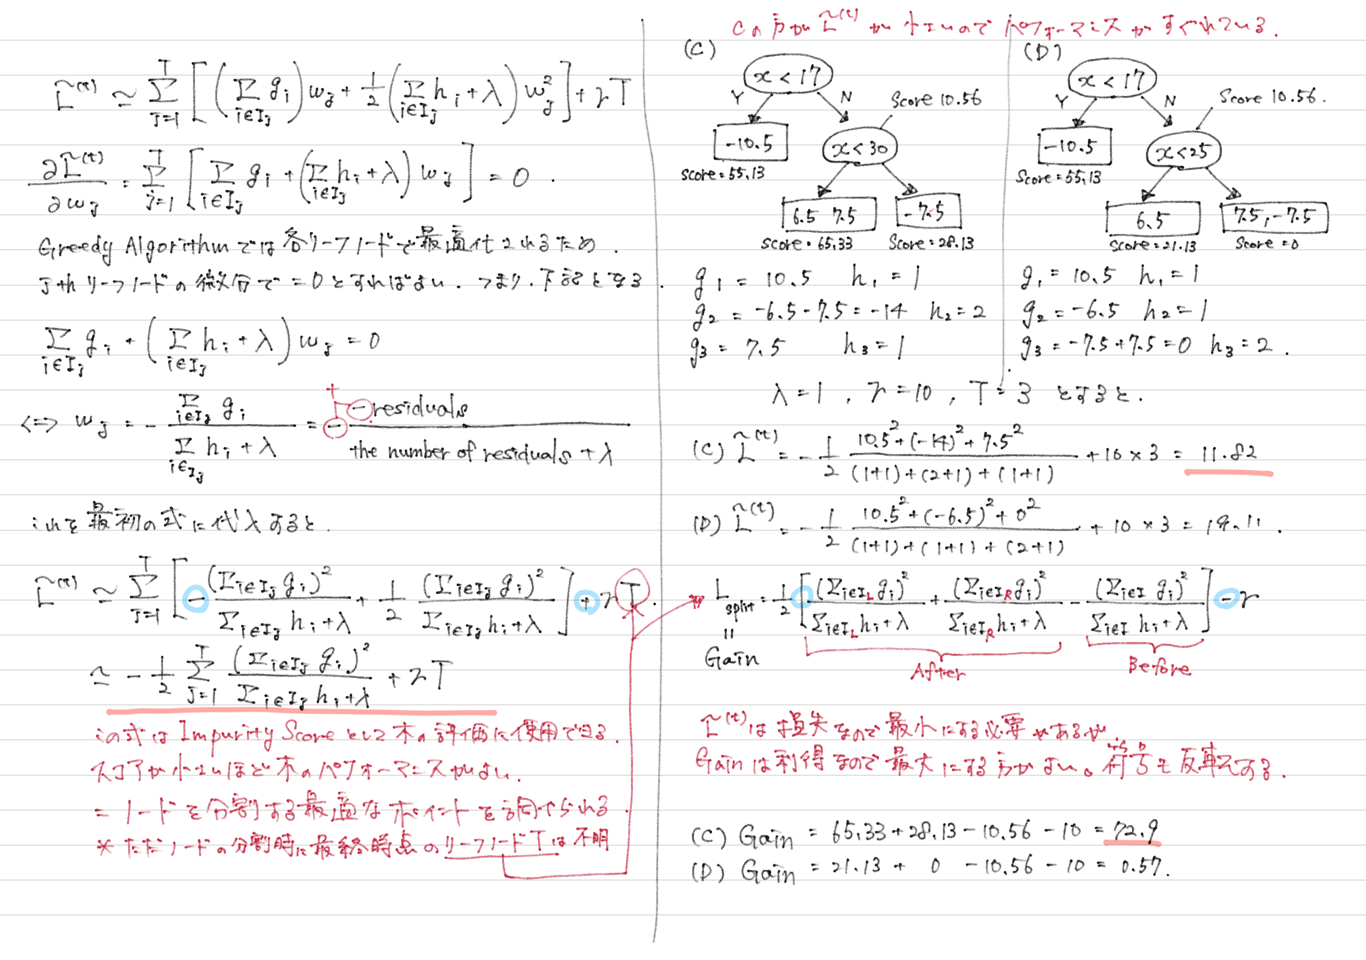 L̃⁽ᵗ⁾ ≃ Σ_{J=1}^{T} [ (Σ_{i∈I_J} g_i) w_J + 1/2 (Σ_{i∈I_J} h_i + λ) w_J² ] + γT
∂L̃⁽ᵗ⁾/∂w_J = Σ_{J=1}^{T} [ Σ_{i∈I_J} g_i + (Σ_{i∈I_J} h_i + λ) w_J ] = 0 .
Greedy Algorithm では各リーフノードで最適化されるため.
Jth リーフノードの微分で = 0 とすればよい. つまり, 下記となる.
Σ_{i∈I_J} g_i + (Σ_{i∈I_J} h_i + λ) w_J = 0
⟺ w_J = - Σ_{i∈I_J} g_i / (Σ_{i∈I_J} h_i + λ) = - -residuals / (the number of residuals + λ)
+
これを最初の式に代入すると.
L̃⁽ᵗ⁾ ≃ Σ_{J=1}^{T} [ - (Σ_{i∈I_J} g_i)² / (Σ_{i∈I_J} h_i + λ) + 1/2 (Σ_{i∈I_J} g_i)² / (Σ_{i∈I_J} h_i + λ) ] + γT.
≃ - 1/2 Σ_{J=1}^{T} (Σ_{i∈I_J} g_i)² / (Σ_{i∈I_J} h_i + λ) + γT
この式は Impurity Score として木の評価に使用できる.
スコアが小さいほど木のパフォーマンスがよい.
= ノードを分割する最適なポイントを調べられる
※ ただノードの分割時に最終時点のリーフノード T は不明
Cの方が L̃⁽ᵗ⁾ が小さいので パフォーマンスがすぐれている.
(C)
x < 17
Y
N
Score 10.56
-10.5
score = 55.13
x < 30
6.5 7.5
score = 65.33
-7.5
Score = 28.13
(D)
x < 17
Y
N
Score 10.56.
-10.5
Score = 55.13
x < 25
6.5
Score = 21.13
7.5, -7.5
Score = 0
g₁ = 10.5 h₁ = 1
g₂ = -6.5 - 7.5 = -14 h₂ = 2
g₃ = 7.5 h₃ = 1
g₁ = 10.5 h₁ = 1
g₂ = -6.5 h₂ = 1
g₃ = -7.5 + 7.5 = 0 h₃ = 2 .
λ = 1 , γ = 10 , T = 3 とすると.
(C) L̃⁽ᵗ⁾ = - 1/2 (10.5² + (-14)² + 7.5²) / ((1+1) + (2+1) + (1+1)) + 10 × 3 = 11.82
(D) L̃⁽ᵗ⁾ = - 1/2 (10.5² + (-6.5)² + 0²) / ((1+1) + (1+1) + (2+1)) + 10 × 3 = 19.11 .
L_split = 1/2 [ (Σ_{i∈I_L} g_i)² / (Σ_{i∈I_L} h_i + λ) + (Σ_{i∈I_R} g_i)² / (Σ_{i∈I_R} h_i + λ) - (Σ_{i∈I} g_i)² / (Σ_{i∈I} h_i + λ) ] - γ
=
Gain
After
Before
L̃⁽ᵗ⁾ は損失なので最小にする必要があるが.
Gain は利得なので最大にする方がよい。符号も反転する.
(C) Gain = 65.33 + 28.13 - 10.56 - 10 = 72.9
(D) Gain = 21.13 + 0 - 10.56 - 10 = 0.57.